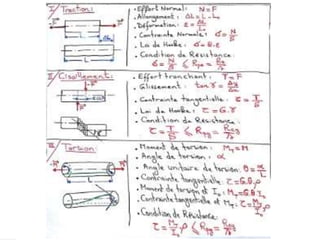 I/ Traction:
. Effort Normal: N=F
. Allongement: ΔL = L-L₀
. Déformation: ε = ΔL/L₀
. Contrainte Normale: σ = N/S
. Loi de Hooke: σ = E.ε
. Condition de Résistance:
σ = N/S ≤ Rpe = Re/s
II/ Cisaillement:
. Effort tranchant: T=F
. Glissement: tan γ =
. Contrainte tangentielle: τ = T/S
. Loi de Hooke: τ = G.γ
. Condition de Résistance:
τ = T/S ≤ Rpg = Reg/s
III/ Torsion:
. Moment de torsion: Mt = M
. Angle de torsion: α
. Angle unitaire de torsion: θ = α/L
. Contrainte tangentielle: τ = G.θ.ρ
. Moment de torsion et I₀: Mt = G.θ.I₀
. Contrainte tangentielle et Mt: τ = Mt/I₀ ρ
. Condition de Résistance:
τ = Mt/I₀ ρ ≤ Rpg = Reg/s